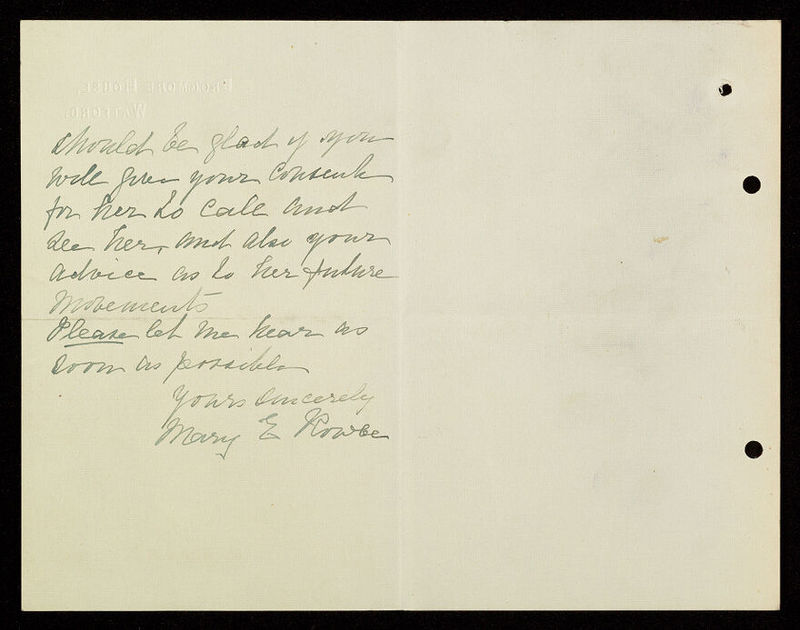 FROGMORE HOUSE,
WATFORD.
should be glad if you
will give your consent
for her to call and
see her, and also your
advice as to her future
movements
Please let me hear as
soon as possible
Yours sincerely
Mary E Rowse